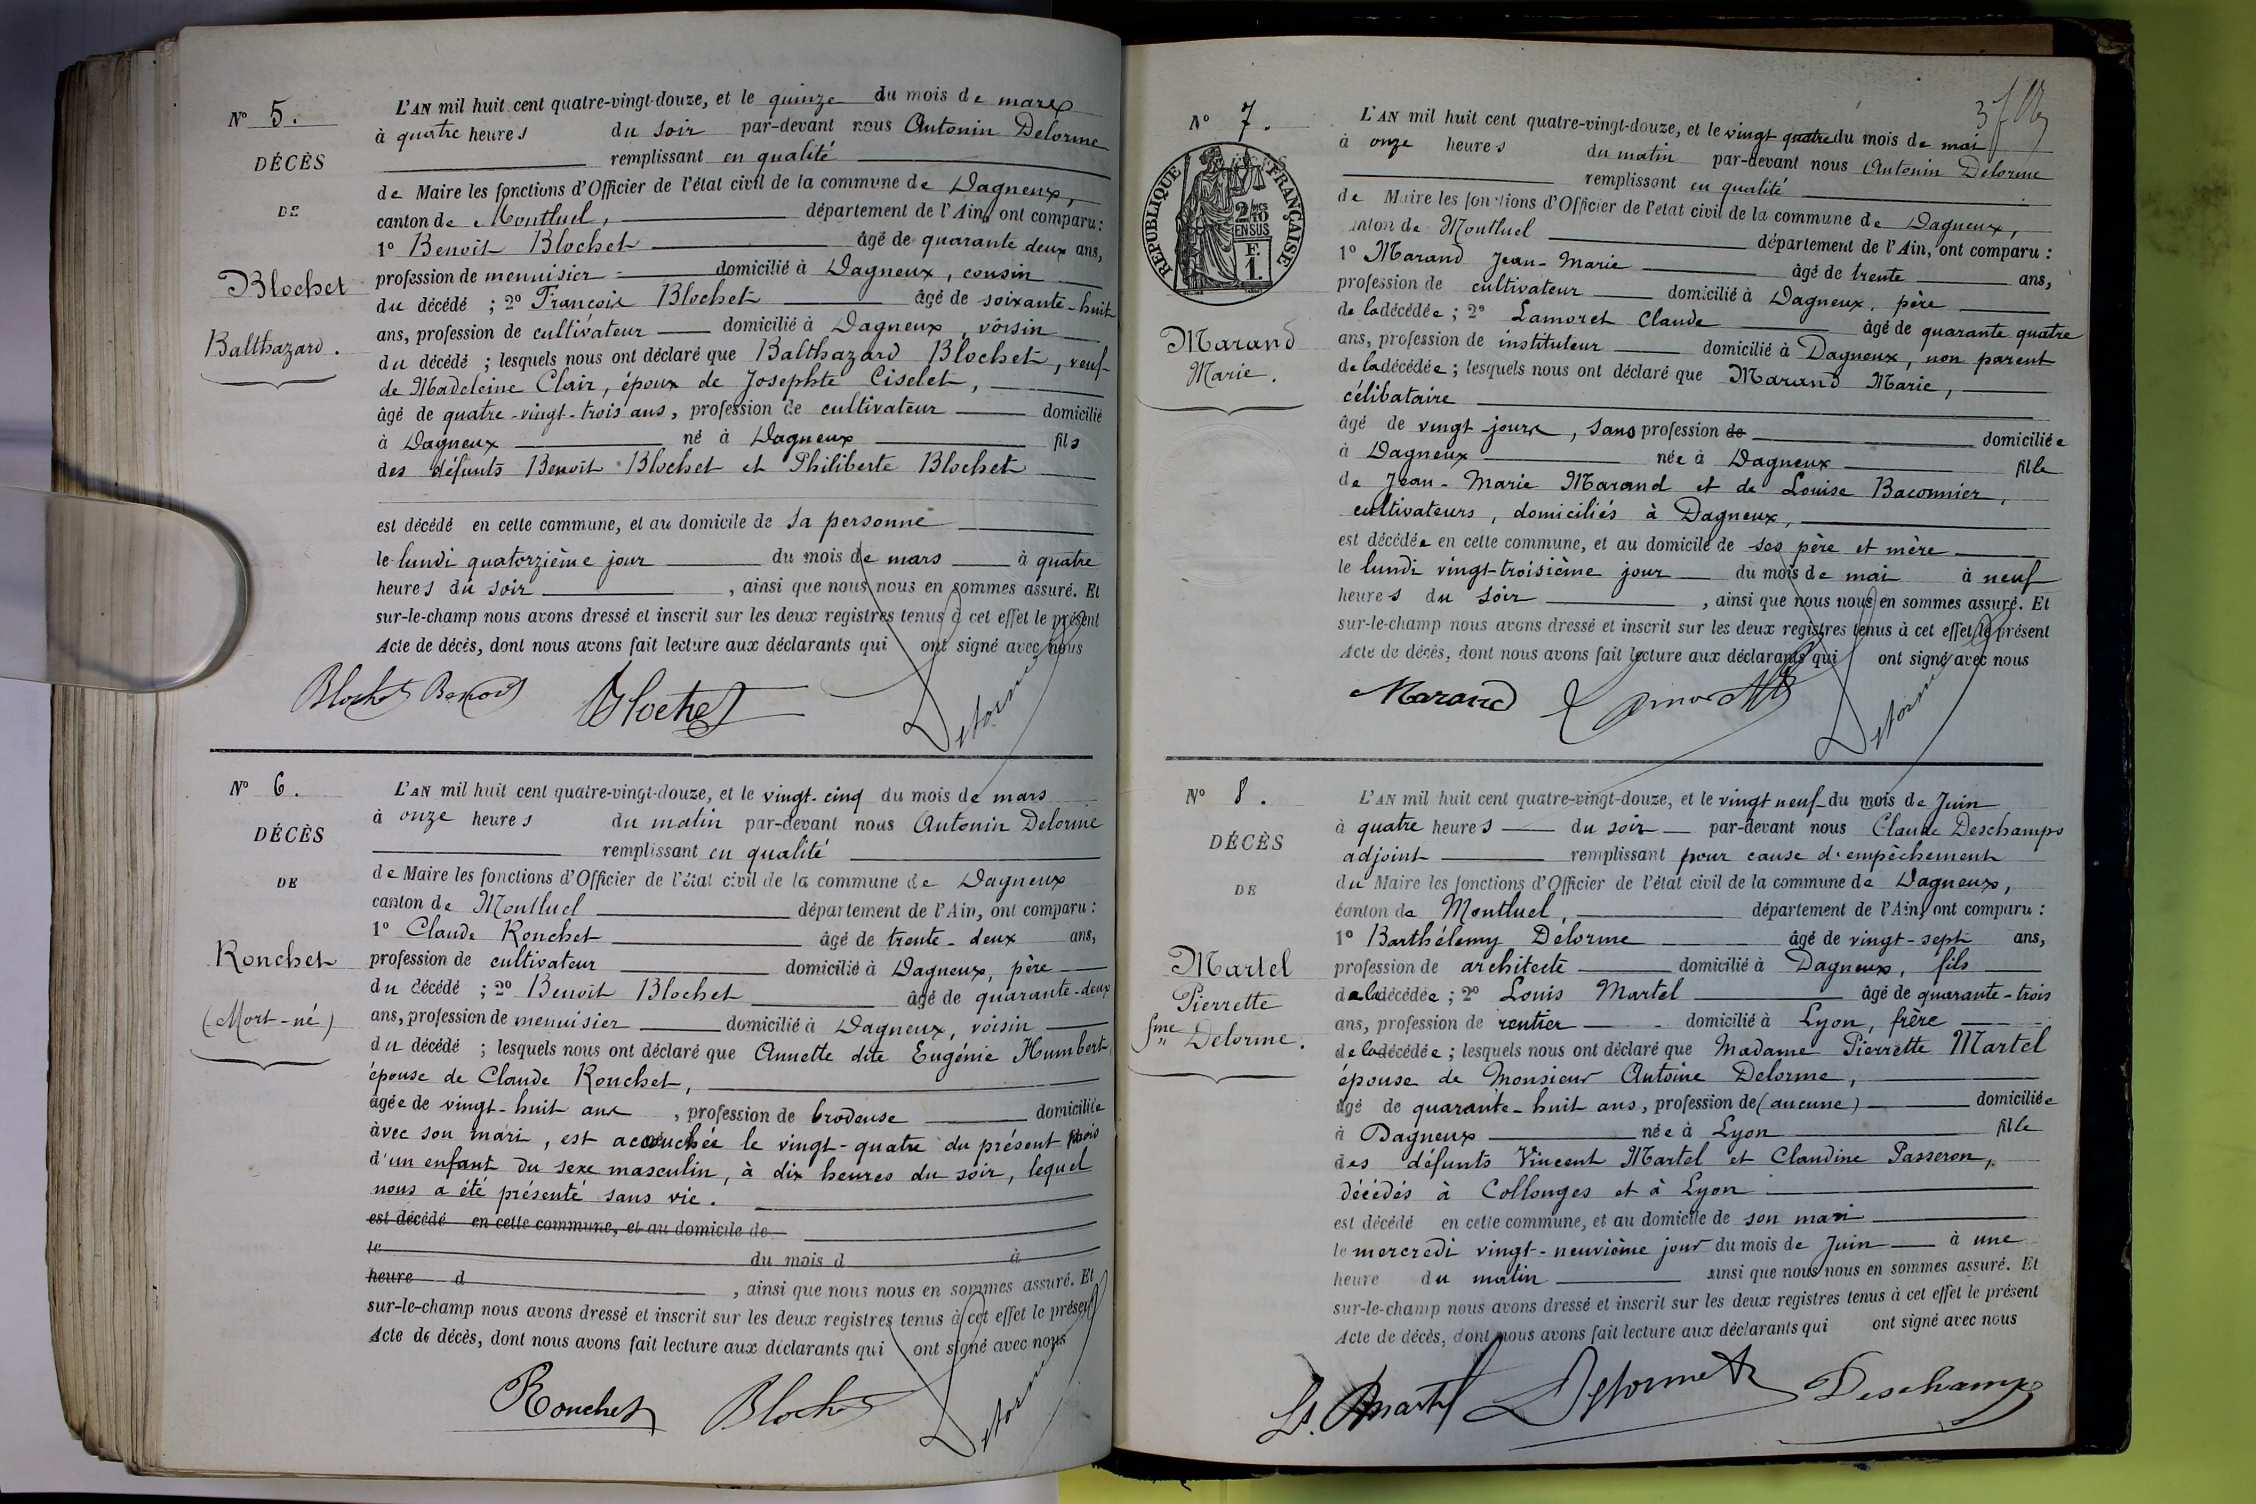 N° 5.
DÉCÈS
DE
Blochet
Balthazard.
L'AN mil huit cent quatre-vingt-douze, et le quinze du mois de mars
à quatre heures du soir par-devant nous Antonin Delorme
remplissant en qualité
de Maire les fonctions d'Officier de l'état civil de la commune de Dagneux,
canton de Montluel, département de l'Ain, ont comparu :
1° Benoit Blochet âgé de quarante deux ans,
profession de menuisier domicilié à Dagneux, cousin
du décédé ; 2° François Blochet âgé de soixante-huit
ans, profession de cultivateur domicilié à Dagneux, voisin
du décédé ; lesquels nous ont déclaré que Balthazard Blochet, veuf
de Madeleine Clair, époux de Josephte Ciselet,
âgé de quatre-vingt-trois ans, profession de cultivateur domicilié
à Dagneux né à Dagneux fils
des défunts Benoit Blochet et Philiberte Blochet
est décédé en cette commune, et au domicile de sa personne
le lundi quatorzième jour du mois de mars à quatre
heures du soir, ainsi que nous nous en sommes assuré. Et
sur-le-champ nous avons dressé et inscrit sur les deux registres tenus à cet effet le présent
Acte de décès, dont nous avons fait lecture aux déclarants qui ont signé avec nous
Blochet Benoit Blochet Delorme
N° 6.
DÉCÈS
DE
Ronchet
(Mort-né)
L'AN mil huit cent quatre-vingt-douze, et le vingt-cinq du mois de mars
à onze heures du matin par-devant nous Antonin Delorme
remplissant en qualité
de Maire les fonctions d'Officier de l'état civil de la commune de Dagneux
canton de Montluel département de l'Ain, ont comparu :
1° Claude Ronchet âgé de trente-deux ans,
profession de cultivateur domicilié à Dagneux, père
du décédé ; 2° Benoit Blochet âgé de quarante-deux
ans, profession de menuisier domicilié à Dagneux, voisin
du décédé ; lesquels nous ont déclaré que Annette dite Eugénie Humbert,
épouse de Claude Ronchet,
âgée de vingt-huit ans, profession de brodeuse domiciliée
avec son mari, est accouchée le vingt-quatre du présent mois
d'un enfant du sexe masculin, à dix heures du soir, lequel
nous a été présenté sans vie.
est décédé en cette commune, et au domicile de
le du mois d à
heure d, ainsi que nous nous en sommes assuré. Et
sur-le-champ nous avons dressé et inscrit sur les deux registres tenus à cet effet le présent
Acte de décès, dont nous avons fait lecture aux déclarants qui ont signé avec nous
Ronchet Blochet Delorme
N° 7.
RÉPUBLIQUE FRANÇAISE
2/10 EN SUS
F.
1.
Marand
Marie.
L'AN mil huit cent quatre-vingt-douze, et le vingt quatre du mois de mai
à onze heures du matin par-devant nous Antonin Delorme
remplissant en qualité
de Maire les fonctions d'Officier de l'état civil de la commune de Dagneux,
canton de Montluel département de l'Ain, ont comparu :
1° Marand Jean-Marie âgé de trente ans,
profession de cultivateur domicilié à Dagneux, père
de la décédée ; 2° Lamoret Claude âgé de quarante quatre
ans, profession de instituteur domicilié à Dagneux, non parent
de la décédée ; lesquels nous ont déclaré que Marand Marie,
célibataire
âgé de vingt jours, sans profession de domiciliée
à Dagneux née à Dagneux fille
de Jean-Marie Marand et de Louise Baconnier,
cultivateurs, domiciliés à Dagneux,
est décédée en cette commune, et au domicile de ses père et mère
le lundi vingt-troisième jour du mois de mai à neuf
heures du soir, ainsi que nous nous en sommes assuré. Et
sur-le-champ nous avons dressé et inscrit sur les deux registres tenus à cet effet le présent
Acte de décès, dont nous avons fait lecture aux déclarants qui ont signé avec nous
Marand Lamoret Delorme
N° 8.
DÉCÈS
DE
Martel
Pierrette
fme Delorme.
L'AN mil huit cent quatre-vingt-douze, et le vingt neuf du mois de Juin
à quatre heures du soir par-devant nous Claude Deschamps
adjoint remplissant pour cause d'empêchement
du Maire les fonctions d'Officier de l'état civil de la commune de Dagneux,
canton de Montluel, département de l'Ain, ont comparu :
1° Barthélemy Delorme âgé de vingt-sept ans,
profession de architecte domicilié à Dagneux, fils
de la décédée ; 2° Louis Martel âgé de quarante-trois
ans, profession de rentier domicilié à Lyon, frère
de la décédée ; lesquels nous ont déclaré que Madame Pierrette Martel
épouse de Monsieur Antoine Delorme,
âgé de quarante-huit ans, profession de (aucune) domiciliée
à Dagneux née à Lyon fille
des défunts Vincent Martel et Claudine Passeron,
décédés à Collonges et à Lyon
est décédé en cette commune, et au domicile de son mari
le mercredi vingt-neuvième jour du mois de Juin à une
heure du matin ainsi que nous nous en sommes assuré. Et
sur-le-champ nous avons dressé et inscrit sur les deux registres tenus à cet effet le présent
Acte de décès, dont nous avons fait lecture aux déclarants qui ont signé avec nous
Ls. Martel Delorme Deschamps